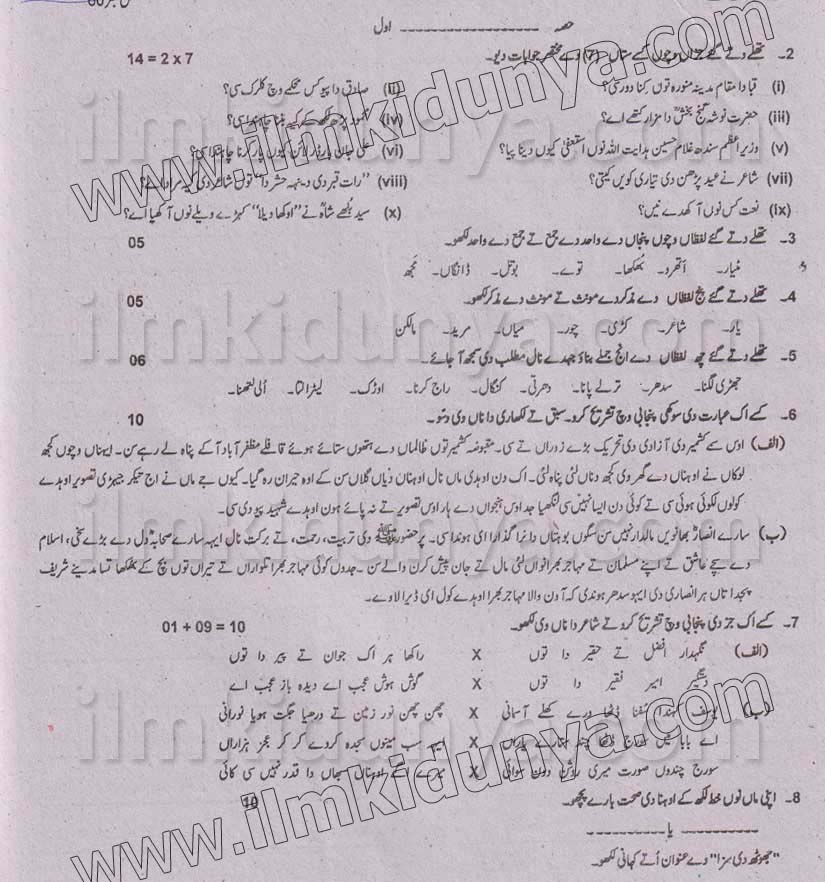 حصہ ــــــــــــــــ اول
2۔ تھلے دتے گئے سوالاں وچوں کسے ستاں (7) دے مختصر جوابات دیو۔ 14 = 2 x 7
(i) قبا دا مقام مدینہ منورہ توں کِنا دور سی؟ (ii) صادق دا پیو کس محکمے وچ کلرک سی؟
(iii) حضرت نوشہ گنج بخشؒ دا مزار کتھے اے؟ (iv) پڑھ لکھ کے کیہ بننا چاہندا سی؟
(v) وزیر اعظم سندھ غلام حسین ہدایت اللہ نوں استعفیٰ کیوں دینا پیا؟ (vi) علی جان بارڈر لائن کیوں پار کرنا چاہندا سی؟
(vii) شاعر نے عید پڑھن دی تیاری کویں کیتی؟ (viii) "رات قبر دی دینہہ حشر دا" توں شاعر دی کیہ مراد اے؟
(ix) نعت کس نوں آکھدے نیں؟ (x) سید بُلھے شاہؒ نے "اوکھا ویلا" کہڑے ویلے نوں آکھیا اے؟
3۔ تھلے دتے گئے لفظاں وچوں پنجاں دے واحد دے جمع تے جمع دے واحد لکھو۔ 05
مٹیار۔ اتھرو۔ بُھکھا۔ توے۔ بوتل۔ ڈانگاں۔ مُجھ
4۔ تھلے دتے گئے پنج لفظاں دے مذکر دے مونث تے مونث دے مذکر لکھو۔ 05
یار۔ شاعر۔ کُڑی۔ چور۔ میاں۔ مرید۔ مالکن
5۔ تھلے دتے گئے چھ لفظاں دے انج جملے بناؤ جیہدے نال مطلب دی سمجھ آ جائے۔ 06
جھڑی لگنا۔ سدھر۔ ترلے پانا۔ دھرتی۔ کنگال۔ راج کرنا۔ اوڑک۔ لیڑا لتا۔ اُلی لتھنا۔
6۔ کسے اک عبارت دی سوکھی پنجابی وچ تشریح کرو۔ سبق تے لکھاری دا ناں وی دسو۔ 10
(الف) اوس سے کشمیر دی آزادی دی تحریک بڑے زوراں تے سی۔ مقبوضہ کشمیر توں ظالماں دے ہتھوں ستائے ہوئے قافلے مظفر آباد آ کے پناہ لے رہے سن۔ ایہناں وچوں کجھ
لوکاں نے اوہناں دے گھر وی کجھ دناں لئی پناہ لئی۔ اک دن اوہدی ماں نال اوہناں دیاں گلاں سن کے اوہ حیران رہ گیا۔ کیوں جے ماں نے اج تیکر جیہڑی تصویر اوہدے
کولوں لکوئی ہوئی سی تے کوئی دن ایسا نہیں سی لنگھیا جد اوس ہنجواں دے ہار اوس تصویر تے نہ پائے ہون اوہدے شہید پیو دی سی۔
(ب) سارے انصارؓ بھانویں مالدار نہیں سن سگوں بوہتاں دا نرا گذارا ای ہوندا سی۔ پر حضورﷺ دی تربیت، رحمت، تے برکت نال ایہہ سارے صحابہؓ دل دے بڑے سخی، اسلام
دے سچے عاشق تے اپنے مسلمان تے مہاجر بھرانواں لئی مال تے جان پیش کرن والے سن۔ جدوں کوئی مہاجر بھرا تلواراں تے تیراں توں بچ کے بُھکھا تسا مدینے شریف
پجدا تاں ہر انصاری دی ایہو سدھر ہوندی کہ آون والا مہاجر بھرا اوہدے کول ای ڈیرا لاوے۔
7۔ کسے اک جز دی پنجابی وچ تشریح کردے تے شاعر دا ناں وی لکھو۔ 01 + 09 = 10
(الف) نگہدار افضل تے حقیر دا توں X راکھا ہر اک جوان تے پیر دا توں
دستگیر امیر فقیر دا توں X گوش ہوش عجب اے دیدہ باز عجب اے
(ب) یوسف کہندا سُفنا ڈٹھا ورے کھلے آسمانی X چھن چھن نور زمین تے ورھیا جگت ہویا نورانی
اے بابا میں سورج ڈٹھا چند ستارے یاراں X ایہہ سب مینوں سجدہ کردے کر کر عجز ہزاراں
سورج چندوں صورت میری روشن دون سوائی X میرے اگے اوہناں سبھاں دا قدر نہیں سی کائی
8۔ اپنی ماں نوں خط لکھ کے اوہنا دی صحت بارے پچھو۔ 10
ـــــــــــ یا ـــــــــــ
"جھوٹھ دی سزا" دے عنوان اُتے کہانی لکھو۔
www.ilmkidunya.com
ilmkidunya.com
ilmkidunya.com
ilmkidunya.com
ilmkidunya.com
www.ilmkidunya.com